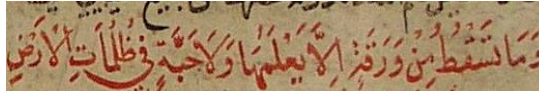 وَمَا تَسْقُطُ مِنْ وَرَقَةٍ اِلَّا يَعْلَمُهَا وَلَا حَبَّةٍ فِي ظُلُمَاتِ الْاَرْضِ